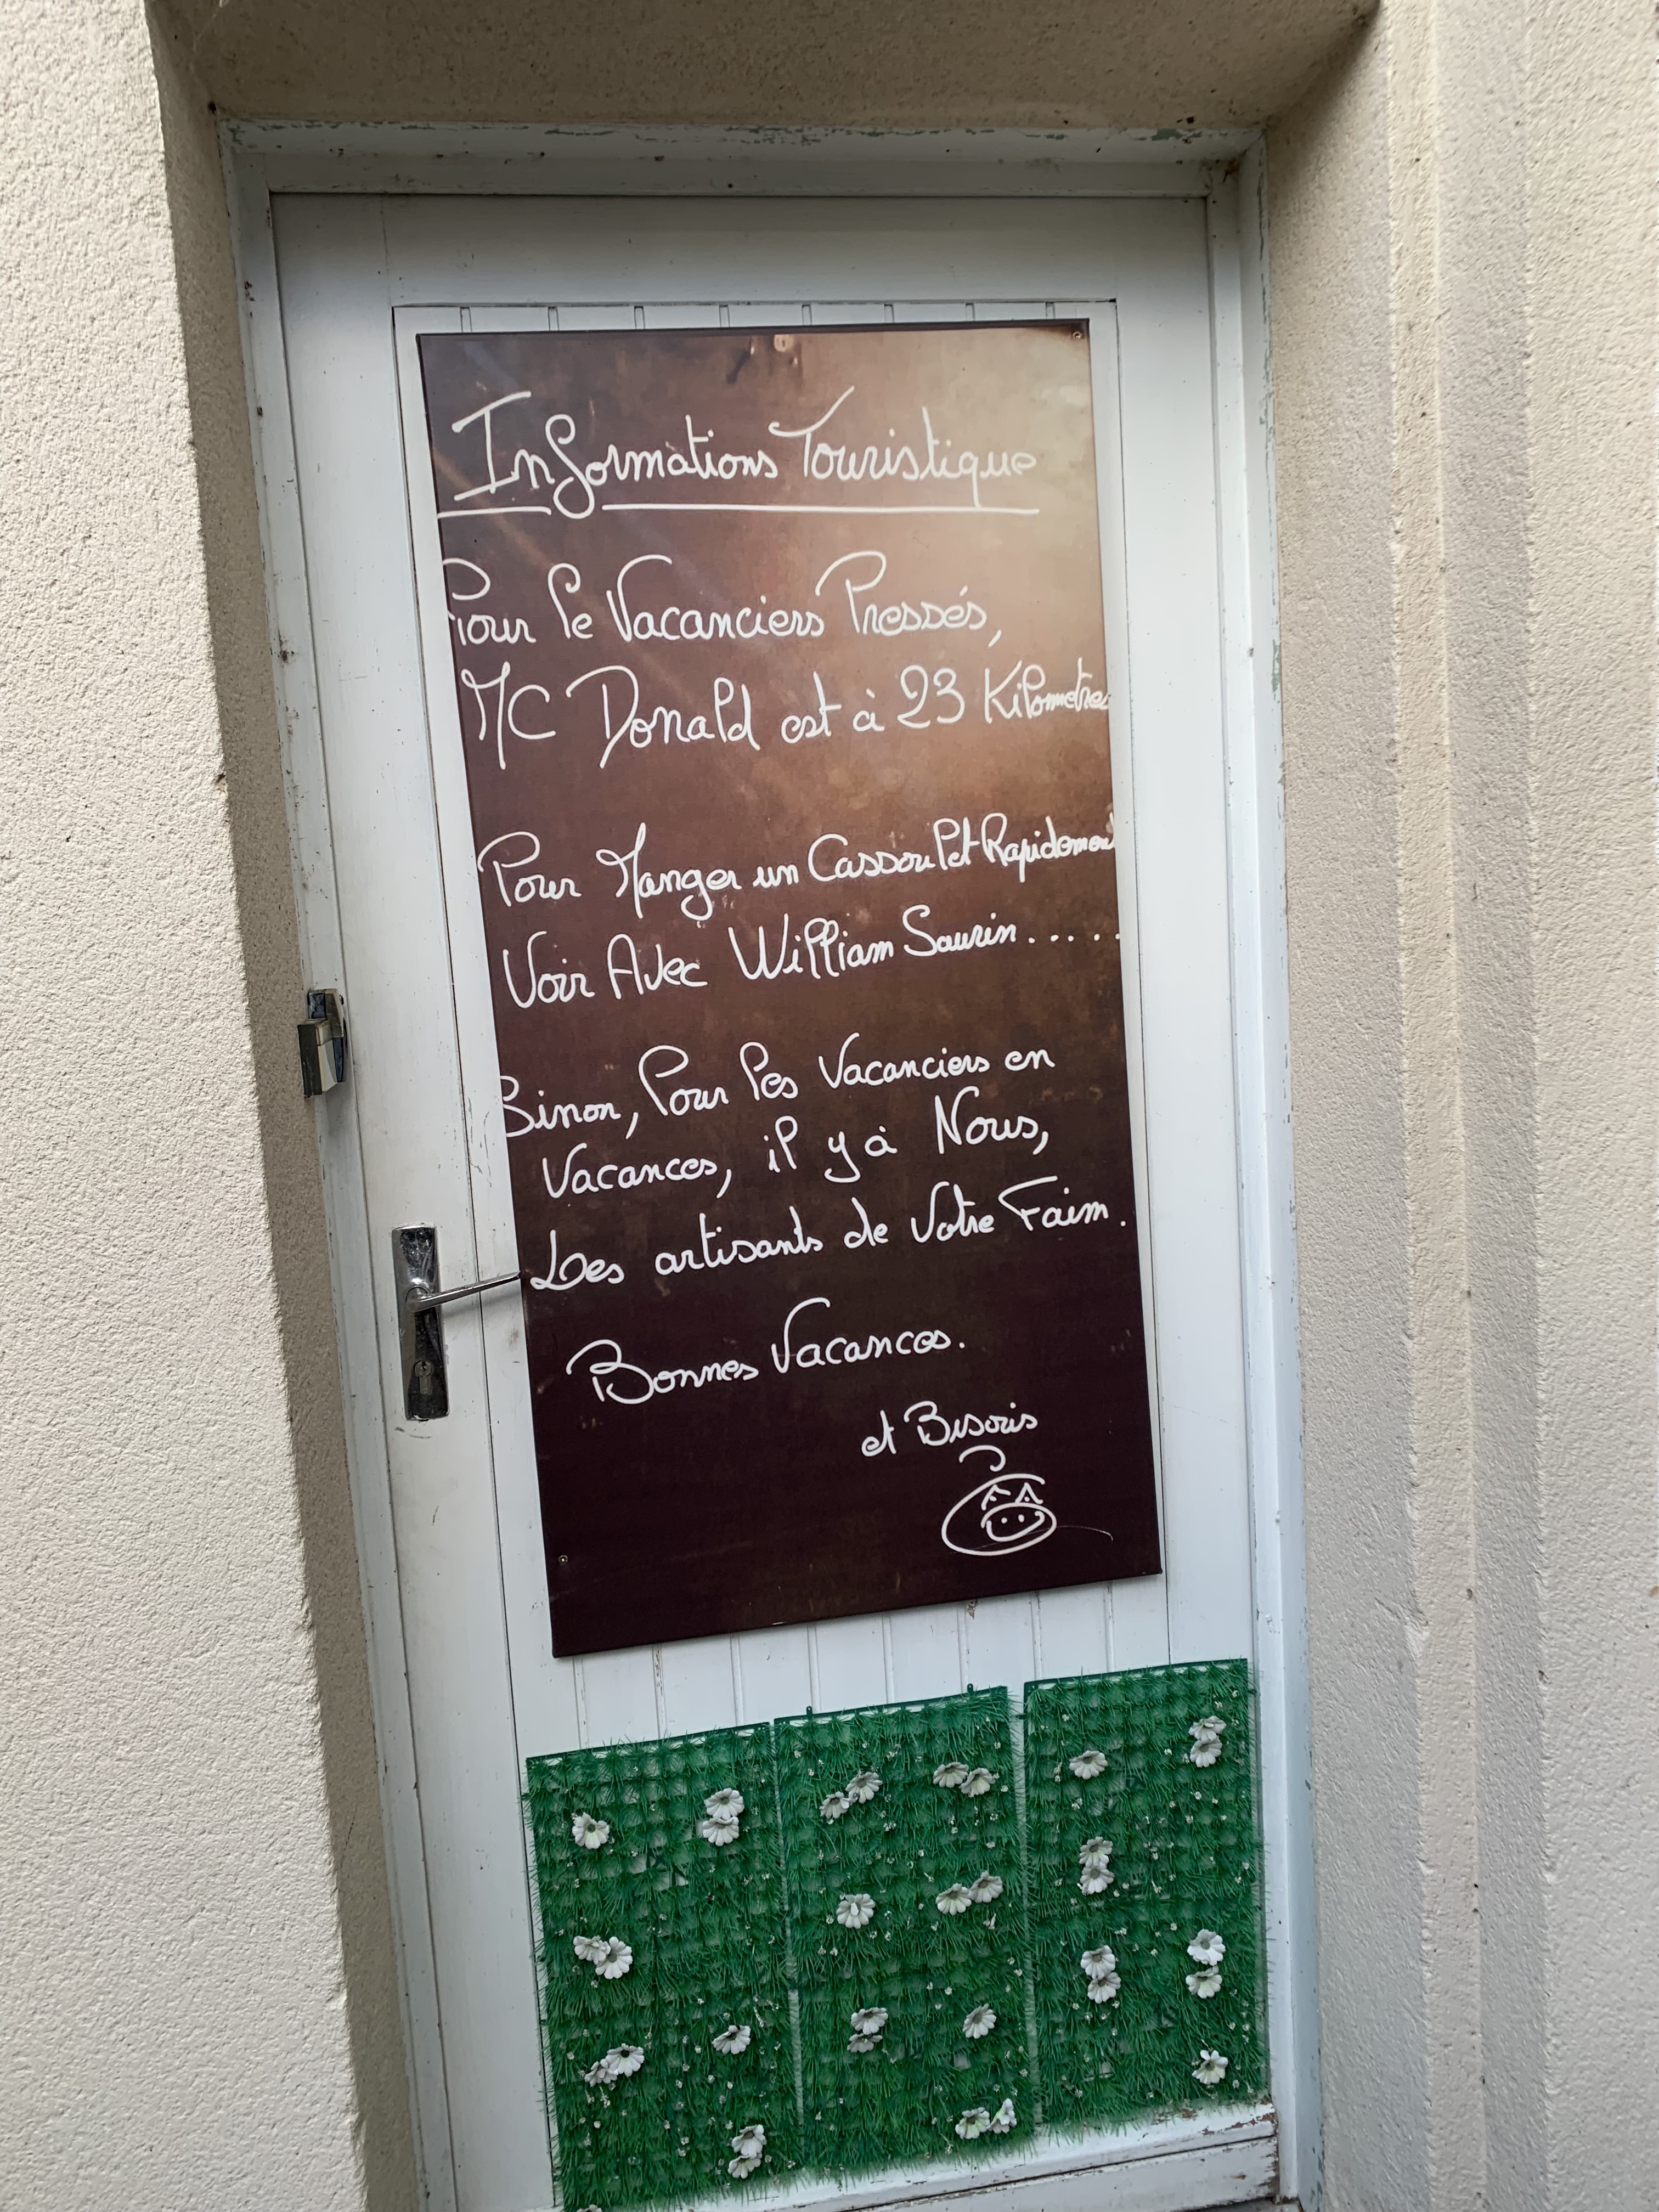 Informations Touristique
Pour le Vacanciers Pressés,
MC Donald est à 23 Kilometres
Pour Manger un Cassoulet Rapidement
Voir Avec William Saurin.....
Sinon, Pour les Vacanciers en
Vacances, il y à Nous,
Les artisants de Votre Faim.
Bonnes Vacances.
et Bisoris